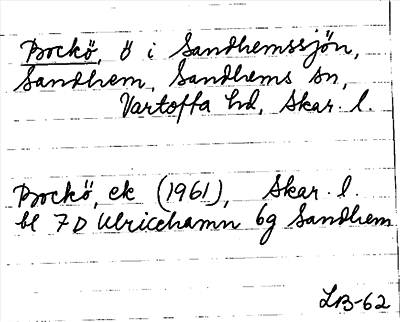 Bockö, ö i Sandhemssjön,
Sandhem, Sandhems sn,
Vartofta hd, Skar. l.
Bockö, ek (1961), Skar. l.
bl 7D Ulricehamn 6g Sandhem
LB-62